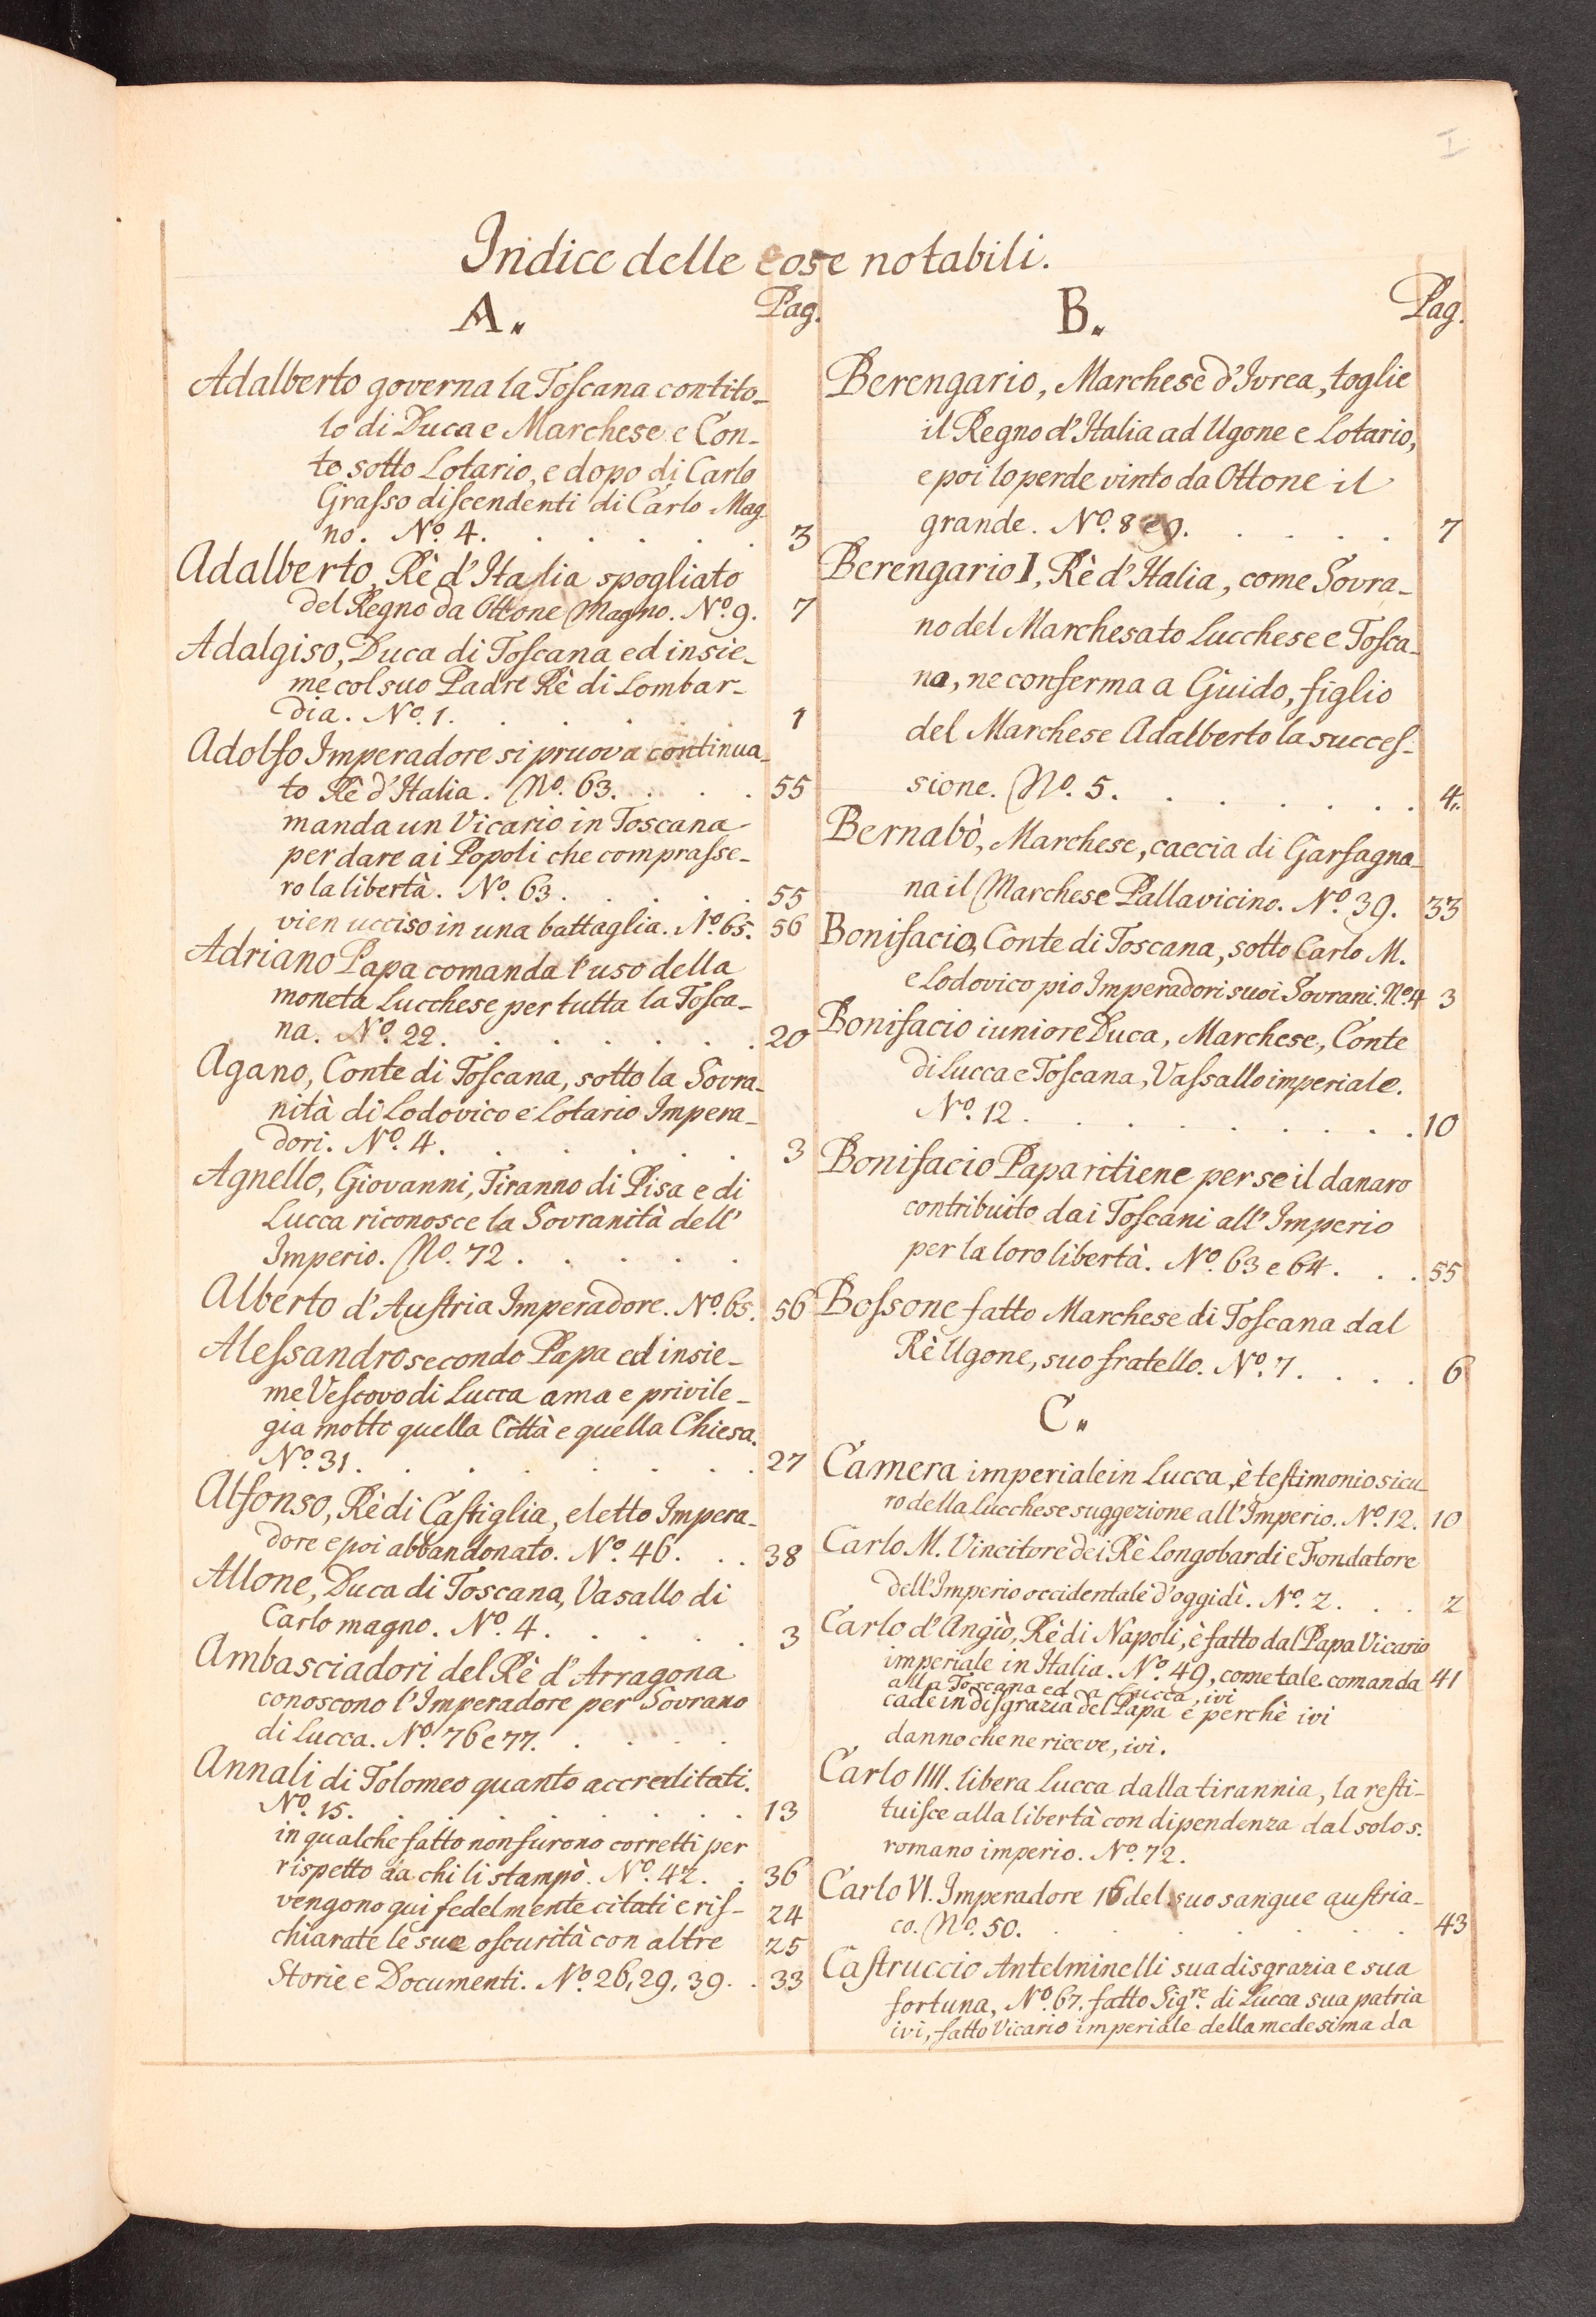 I
Indice delle cose notabili.
A.
Pag.
Adalberto governa la Toscana con tito-
lo di Duca e Marchese e Con-
te sotto Lotario, e dopo di Carlo
Grasso discendenti di Carlo Mag-
no. No. 4. . . . . . 3
Adalberto, Rè d'Italia spogliato
del Regno da Ottone Magno. No. 9. 7
Adalgiso, Duca di Toscana ed insie-
me col suo Padre Rè di Lombar-
dia. No. 1. . . . . . 1
Adolfo Imperadore si pruova continua-
to Rè d'Italia. No. 63. . . . 55
manda un Vicario in Toscana
per dare ai Popoli che comprasse-
ro la libertà. No. 63. . . . . 55
vien ucciso in una battaglia. No. 65. 56
Adriano Papa comanda l'uso della
moneta Lucchese per tutta la Tosca-
na. No. 22. . . . . . . 20
Agano, Conte di Toscana, sotto la Sovra-
nità di Lodovico e Lotario Impera-
dori. No. 4. . . . . . 3
Agnello, Giovanni, Tiranno di Pisa e di
Lucca riconosce la Sovranità dell'
Imperio. No. 72. . . . .
Alberto d'Austria Imperadore. No. 65. 56
Alessandro secondo Papa ed insie-
me Vescovo di Lucca ama e privile-
gia molto quella Città e quella Chiesa.
No. 31. . . . . . . . 27
Alfonso, Rè di Castiglia, eletto Impera-
dore e poi abbandonato. No. 46. . . 38
Allone, Duca di Toscana, Vasallo di
Carlo magno. No. 4. . . . . 3
Ambasciadori del Rè d'Arragona
conoscono l'Imperadore per Sovrano
di Lucca. No. 76 e 77. . . . .
Annali di Tolomeo quanto accreditati.
No. 15. . . . . . . . 13
in qualche fatto non furono corretti per
rispetto da chi li stampò. No. 42. . 36
vengono qui fedelmente citati e ris- 24
chiarate le sue oscurità con altre 25
Storie e Documenti. No. 26, 29, 39. . 33
B.
Pag.
Berengario, Marchese d'Ivrea, toglie
il Regno d'Italia ad Ugone e Lotario,
e poi lo perde vinto da Ottone il
grande. No. 8 e 9. . . . . 7
Berengario I, Rè d'Italia, come Sovra-
no del Marchesato Lucchese e Tosca-
na, ne conferma a Guido, figlio
del Marchese Adalberto la succes-
sione. No. 5. . . . . . . 4.
Bernabò, Marchese, caccia di Garfagna-
na il Marchese Pallavicino. No. 39. 33
Bonifacio, Conte di Toscana, sotto Carlo M.
e Lodovico pio Imperadori suoi Sovrani. No. 4 3
Bonifacio iuniore Duca, Marchese, Conte
di Lucca e Toscana, Vassallo imperiale.
No. 12. . . . . . . . 10
Bonifacio Papa ritiene per se il danaro
contribuito dai Toscani all'Imperio
per la loro libertà. No. 63 e 64. . . 55
Bossone fatto Marchese di Toscana dal
Rè Ugone, suo fratello. No. 7. . . . 6
C.
Camera imperiale in Lucca, è testimonio sicu-
ro della Lucchese suggezione all'Imperio. No. 12. 10
Carlo M. Vincitore dei Rè Longobardi e Fondatore
dell'Imperio occidentale d'oggidì. No. 2. . . 2
Carlo d'Angiò, Rè di Napoli, è fatto dal Papa Vicario
imperiale in Italia. No. 49, come tale comanda 41
alla Toscana ed a Lucca, ivi
cade in disgrazia del Papa e perchè ivi
danno che ne riceve, ivi.
Carlo IIII. libera Lucca dalla tirannia, la resti-
tuisce alla libertà con dipendenza dal solo s.
romano imperio. No. 72.
Carlo VI. Imperadore 16 del suo sangue austria-
co. No. 50. . . . . . . 43
Castruccio Antelminelli sua disgrazia e sua
fortuna, No. 67. fatto Sigre. di Lucca sua patria
ivi, fatto Vicario imperiale della medesima da